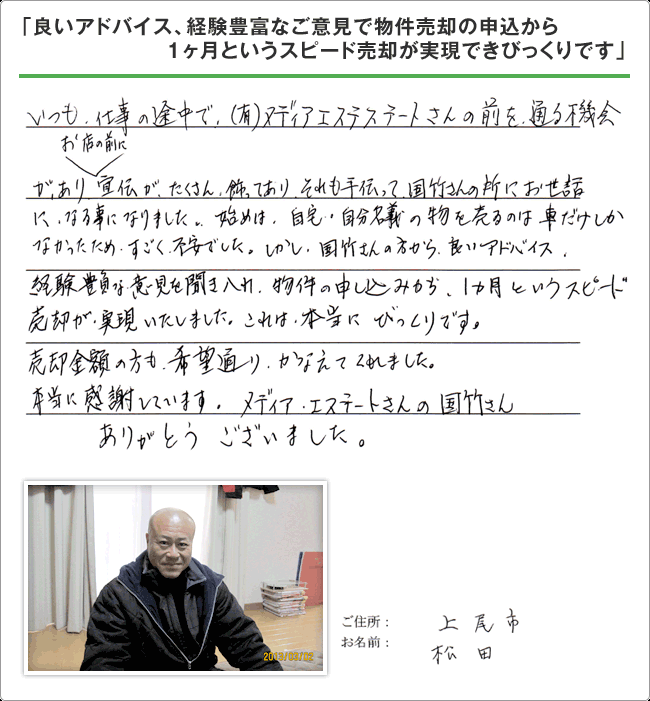 「良いアドバイス、経験豊富なご意見で物件売却の申込から
1ヶ月というスピード売却が実現できびっくりです」
いつも、仕事の途中で、(有)メディアエステステートさんの前を、通る機会
お店の前に
が、あり、宣伝が、たくさん、飾ってあり、それも手伝って、国竹さんの所にお世話
に、なる事になりました。始めは、自宅・自分名義の物を売るのは車だけしか
なかったため、すごく、不安でした。しかし、国竹さんの方から、良いアドバイス、
経験豊富な意見を聞き入れ、物件の申し込みから、1カ月というスピード
売却が、実現いたしました。これは、本当に びっくりです。
売却金額の方も、希望通り、かなえてくれました。
本当に感謝しています。メディア・エステートさんの国竹さん
ありがとう ございました。
ご住所: 上尾市
お名前: 松田